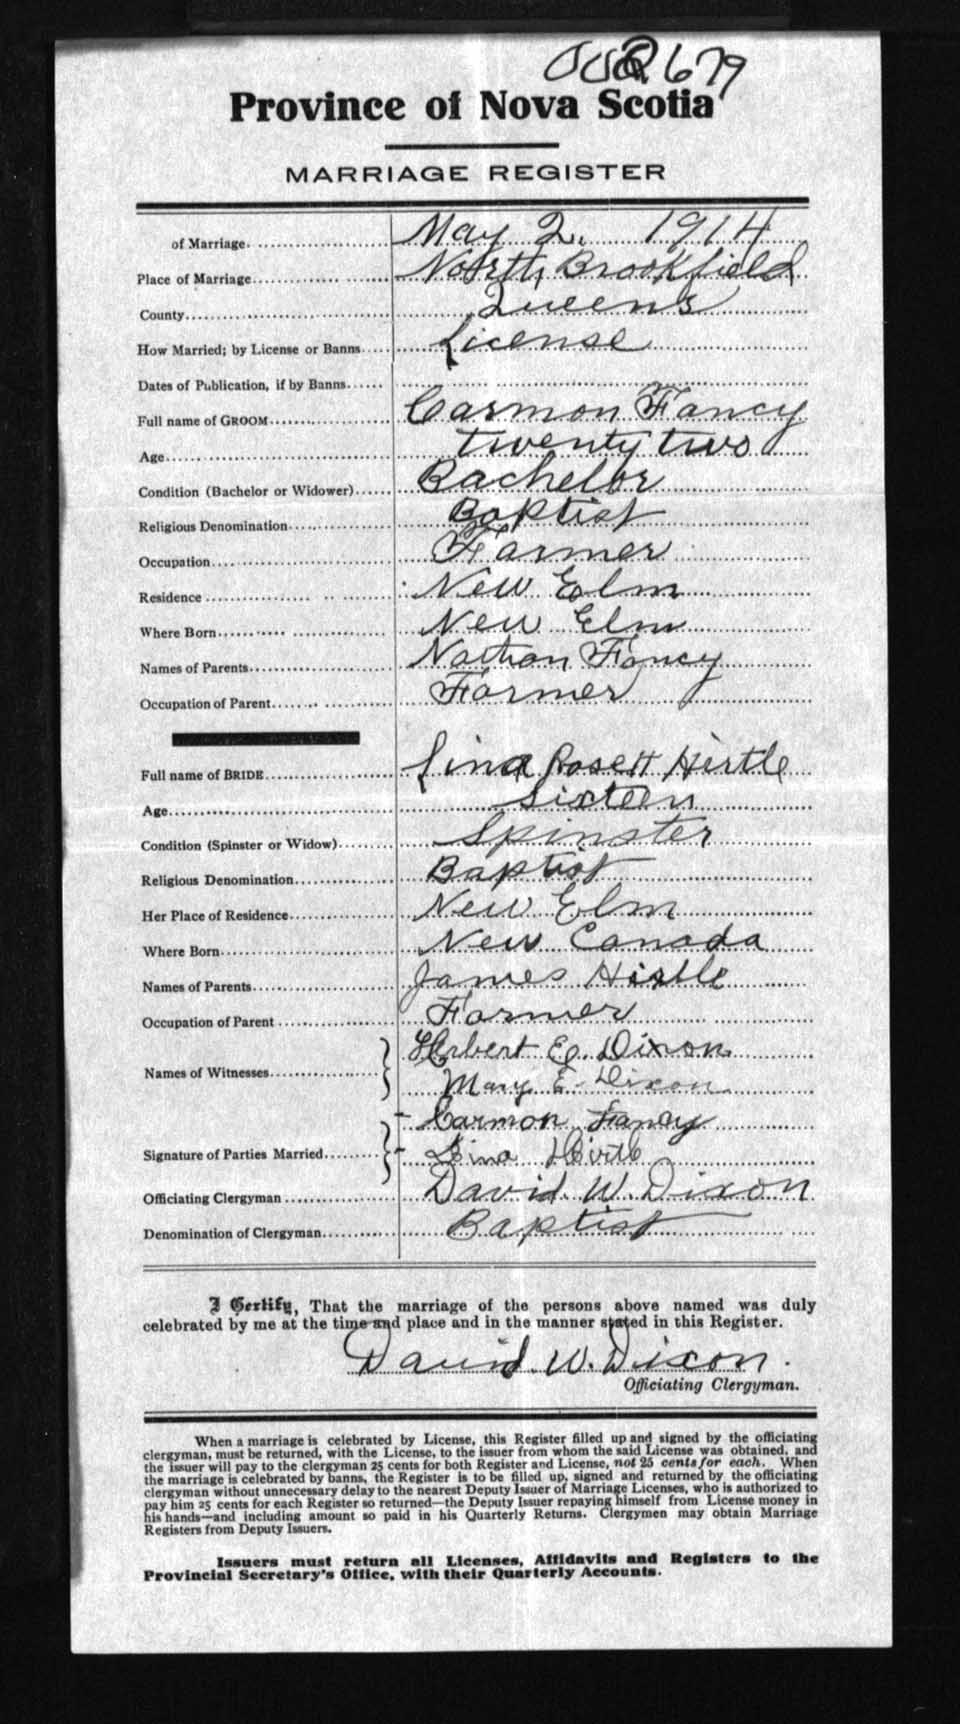 679
Province of Nova Scotia
MARRIAGE REGISTER
of Marriage May 2. 1914
Place of Marriage North Brookfield
County Queens
How Married; by License or Banns License
Dates of Publication, if by Banns
Full name of GROOM Carmon Fancy
Age twenty two
Condition (Bachelor or Widower) Bachelor
Religious Denomination Baptist
Occupation Farmer
Residence New Elm
Where Born New Elm
Names of Parents Nathan Fancy
Occupation of Parent Farmer
Full name of BRIDE Lina Rosett Hirtle
Age sixteen
Condition (Spinster or Widow) Spinster
Religious Denomination Baptist
Her Place of Residence New Elm
Where Born New Canada
Names of Parents James Hirtle
Occupation of Parent Farmer
Names of Witnesses Herbert E. Dixon
Mary E. Dixon
Carmon Fancy
Signature of Parties Married Lina Hirtle
Officiating Clergyman David W. Dixon
Denomination of Clergyman Baptist
I Certify, That the marriage of the persons above named was duly
celebrated by me at the time and place and in the manner stated in this Register.
David W. Dixon.
Officiating Clergyman.
When a marriage is celebrated by License, this Register filled up and signed by the officiating
clergyman, must be returned, with the License, to the issuer from whom the said License was obtained, and
the issuer will pay to the clergyman 25 cents for both Register and License, not 25 cents for each. When
the marriage is celebrated by banns, the Register is to be filled up, signed and returned by the officiating
clergyman without unnecessary delay to the nearest Deputy Issuer of Marriage Licenses, who is authorized to
pay him 25 cents for each Register so returned—the Deputy Issuer repaying himself from License money in
his hands—and including amount so paid in his Quarterly Returns. Clergymen may obtain Marriage
Registers from Deputy Issuers.
Issuers must return all Licenses, Affidavits and Registers to the
Provincial Secretary's Office, with their Quarterly Accounts.